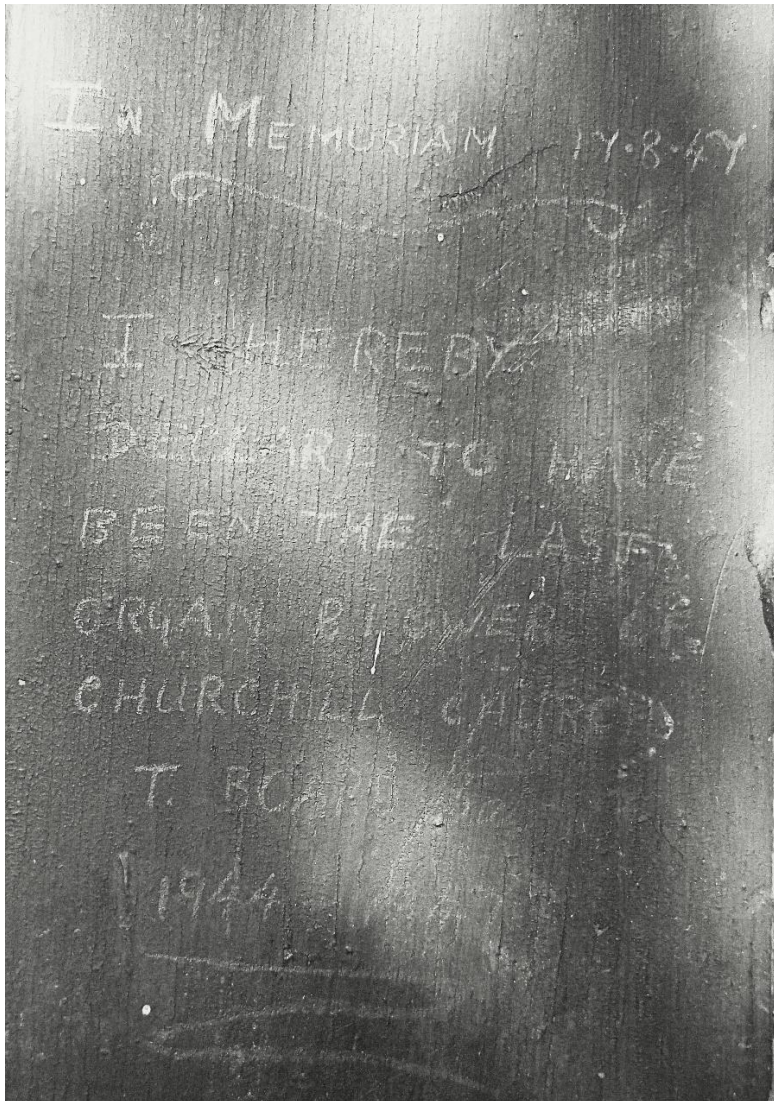 IN MEMURIAM 17.8.47
I HEREBY
DECLARE TO HAVE
BEEN THE LAST
ORGAN BLOWER OF
CHURCHILL CHURCH
T. BOARD
1944